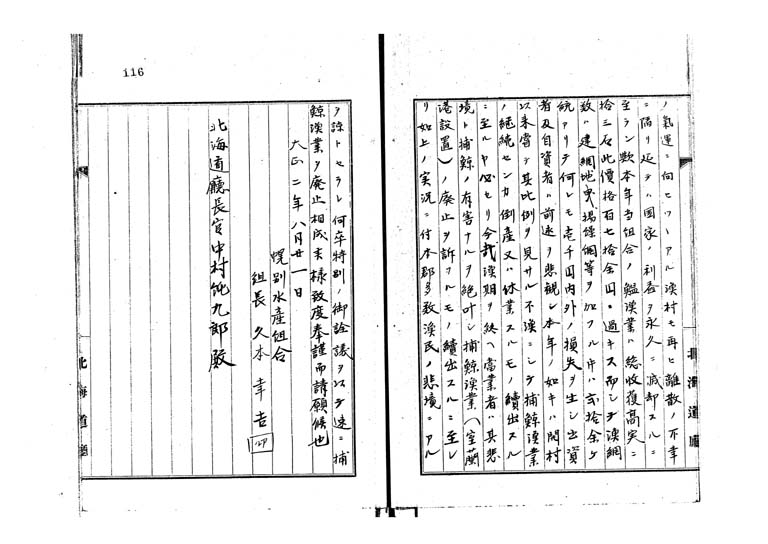 ノ氣運ニ向ヒツヽアル漁村モ再ヒ離散ノ不幸
ニ陥リ延テハ國家ノ利益ヲ永久ニ滅却スルニ
至ラン歟本年当組合ノ鰮漁業ハ総收獲高実ニ
拾三石此價格百七拾余円ニ過キス而シテ漁網
数ハ建網地曳揚繰網等ヲ加フル時ハ弐拾余ケ
統アリテ何レモ壱千円内外ノ損失ヲ生シ出資
者及自資者ハ前途ヲ悲観シ本年ノ如キハ開村
以来嘗テ其比例ヲ見サル不漁ニシテ捕鯨漁業
ノ継続センカ倒産又ハ休業スルモノ續出スル
ニ至ル可セリ今哉漁期ヲ終ヘ當業者ハ其悲
境ト捕鯨ノ有害ナルヲ絶叶シ捕鯨漁業(室蘭
港設置)ノ廃止ヲ訴フルモノ續出スルニ至レ
リ如上ノ実況ニ付本郡多数漁民ノ悲境ニアル
北海道廳
116
ヲ諒トセラレ何卒特別ノ御詮議ヲ以テ速ニ捕
鯨漁業ヲ廃止相成候様致度奉謹而請願候也
大正二年八月廿一日
幌別水産組合
組長 久本幸吉 印
北海道廳長官中村純九郎殿
北海道廳